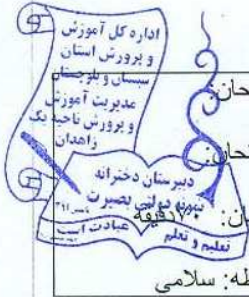 اداره کل آموزش
و پرورش استان
سیستان و بلوچستان
مدیریت آموزش
و پرورش ناحیه یک
زاهدان
دبیرستان دخترانه
نمونه دولتی بصیرت
عبادت است
تعلیم و تعلم
حان:
تحان:
ان: دقیقه
طه: سلامی